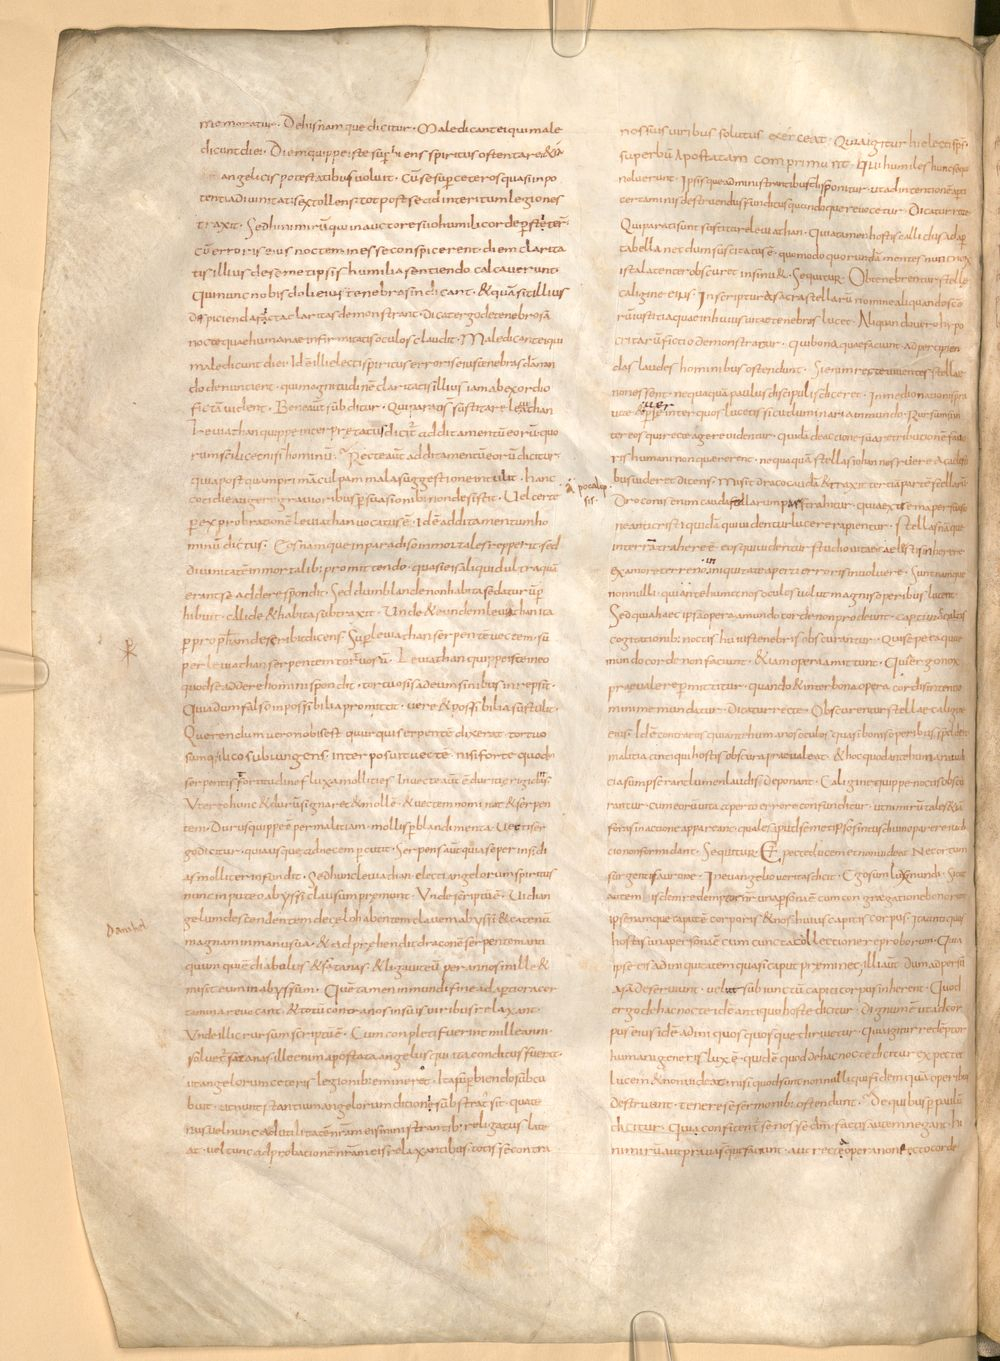 memoratur. Dehis nam que dicitur. Maledicant ei qui male
dicunt diei. Diem quippe iste suphiens spiritus ostentare &iā
angelicis potestatibus voluit. Cū se sup ceteros quasi in po
tentia divinitatis extollens tot post se ad interitum legiones
traxit. Sed hi nimirū qui in auctore suo humili corde pstiter̄
cū erroris eius noctem inesse conspicerent diem clarita
tis illius de semetipsis humilia sentiendo calcaverunt.
Qui nunc nobis doli eius tenebras indicant. & quā sit illius
despicienda ficta claritas demonstrant. Dicat ergo de tenebrosa
nocte quae humanae infirmitatis oculos claudit. Maledicant ei qui
maledicunt diei. Idē illi electi spiritus erroris eius tenebras dānan
do denuntient. qui magnitudinē claritatis illius iam ab exordio
fictā vident. Bene aut subditur. Qui parati st̄ suscitare leviathan
Leviathan quippe interpretatus dicit̄ additamentū eorū quo
rum scilicet nisi hominū. Recte aut additamentū eorū dicitur
quia post quam primā culpam mala suggestione intulit. hanc
cotidie augeri gravioribus psuasionib non desistit. Vel certe
p exprobrationē leviathan vocatus ē. Idē additamentum ho
minū dictus. Eos nam que in paradiso inmortales repperit. sed
divinitatē inmortalib promittendo. quasi eis aliquid ultra quā
erant se addere spondit. Sed dum blande non habita se daturū p
hibuit. callide & habita subtraxit. Unde & eundem leviathan ita
ppropheta describit dicens. Sup leviathan serpentē vectem. sup
per leviathan serpentem tortuosū. Leviathan quippe iste in eo
quod se addere homini spondit. tortuosis ad eum sinibus inrepsit.
Quia dum falso inpossibilia promittit. vere & possibilia sustulit.
Querendum vero nobis est quur qui serpentē dixerat tortuo
sum. ilico subiungens. interposuit vectē. nisi forte quod in
serpentis tortitudine fluxa mollities. In vecte aut ē durities rigidus.
Ut ergo hunc & durū signaret & mollē. & vectem nominat & serpen
tem. Durus quippe ē per malitiam. mollis p blandimenta. Vectis er
go dicitur. quia usque ad necem percutit. Serpens aut quia se per insidi
as molliter infundit. Sed hunc leviathan electi angelorum spiritus
nunc in puteo abyssi clausum premunt. Unde scriptū ē. Vidi an
gelum descendentem de celo habentem clavem abyssi & catenā
magnam in manu sua. & adprehendit draconē serpentem anti
quum qui ē diabolus & satanas. & ligavit eū per annos mille &
misit eum in abyssum. Que tamen in mundi fine ad aptiora cer
tamina revocant. & totū contra nos in suis viribus relaxant.
Unde illic rursum scriptū ē. Cum conpleti fuerint mille anni.
solvet̄ satanas. ille enim apostata angelus qui ita conditus fuerat.
ut angelorum ceteris legionib emineret. Ita superbiendo subcu
buit. ut nunc stantium angelorum dicioni substrat̄ sit. quate
nus vel nunc ad utilitatē nr̄am eis ministrantib religatus late
at. vel tunc ad probationē nr̄am eis relaxantibus. totis se contra
Danihel
Apocalip
sis.
nos suis viribus solutus exerceat. Quia igitur hi electi sps
superbū apostatam comprimunt. qui humiles hunc sequi
noluerunt. Ipsisque administrantibus disponitur. ut ad intentionē apti
certaminis destruendus funditus quandoque revocetur. Dicatur recte
Qui parati sunt suscitare leviathan. Quia tamen hostis callidus ad ap
ta bella necdum suscitatus ē. quomodo quorundā mentes nunc nox
ista latenter obscuret insinuat. Sequitur. Obtenebrentur stelle
caligine eius. In scriptura sacra stellarū nomine aliquando scō
rū iustitia quae in huius vitae tenebras lucet. Aliquando vero hypo
critarū fictio demonstratur. qui bona quae faciunt. ad percipien
das laudes hominibus ostendunt. Si enim recte viventes stellae
non essent. nequaquā paulus discipulis diceret. In medio nationis pra
vae & pverse inter quos lucetis sicut luminaria in mundo. Rursum si in
ter eos qui recte agere videntur. quidā de actione sua retributionē favo
ris humani non quererent. nequaquā stellas iohannes ruere a caelesti
bus videret dicens. Misit draco caudā & traxit tertiā partē stellarū
Draconis enim cauda stellarum pars trahitur. quia extrema persuasio
ne anticristi quidā qui videntur lucere rapientur. Stellas nāque
in terrā trahere ē. eos qui videntur studio vitae caelestis inherere
ex amore terreno iniquitate aperti erroris involvere. Sunt namque
nonnulli. qui ante humanos oculos velut magnis operibus lucent.
Sed quia haec ipsa opera mundo corde non prodeunt. capti in occultis
cogitationib. noctis huius tenebris obscurantur. Qui sepe ea quae
mundo corde non faciunt. & iam opera amittunt. Quia ergo nox
praevalere permittitur. quando & inter bona opera cordis intentio
minime mundatur. Dicatur recte. Obscurentur stellae caligine
eius. Idē contra eos qui ante humanos oculos quasi bonis operibus splendent
malitia antiqui hostis obscura praevaleat. & hoc quod ante humana iudi
cia sumpserant lumen laudis deponant. Caligine quippe noctis obscu
rantur. cum eorū vita aperto errore confunditur. ut nimirū tales etiā
foras in actione appareant. quales apud semetipsos intus divino parere iudi
cio non formidant. Sequitur. Expectet lucem et non videat. Nec ortum
surgentis aurorae. In evangelio veritas dicit. Ego sum lux mundi. Sicut
autem isdem redemptor nr̄ una persona ē cum congregatione bonorum
ipse namque caput ē corporis & nos huius capitis corpus. ita antiquus
hostis una persona ē cum cuncta collectione reproborum. Quia
ipse eis ad iniquitatem quasi caput preminet. illi aut. dum ad persu
asa deserviunt. velut subiunctū capiti corpus inherent. Quod
ergo de hac nocte idē antiquo hoste dicitur. Dignum ē ut ad cor
pus eius idē ad iniquos quosque dirivetur. Quia igitur redēptor
humani generis lux ē. quid ē quod de hac nocte dicitur expectet
lucem & non videat. nisi quod sunt nonnulli qui fidem quā operibus
destruunt. tenere se sermonib. ostendunt. De quibus p paulū
dicitur. Qui confitent̄ se nosse dm̄. factis autem negant. hi
nimirū aut prava sunt que faciunt. aut recta opera non recto corde